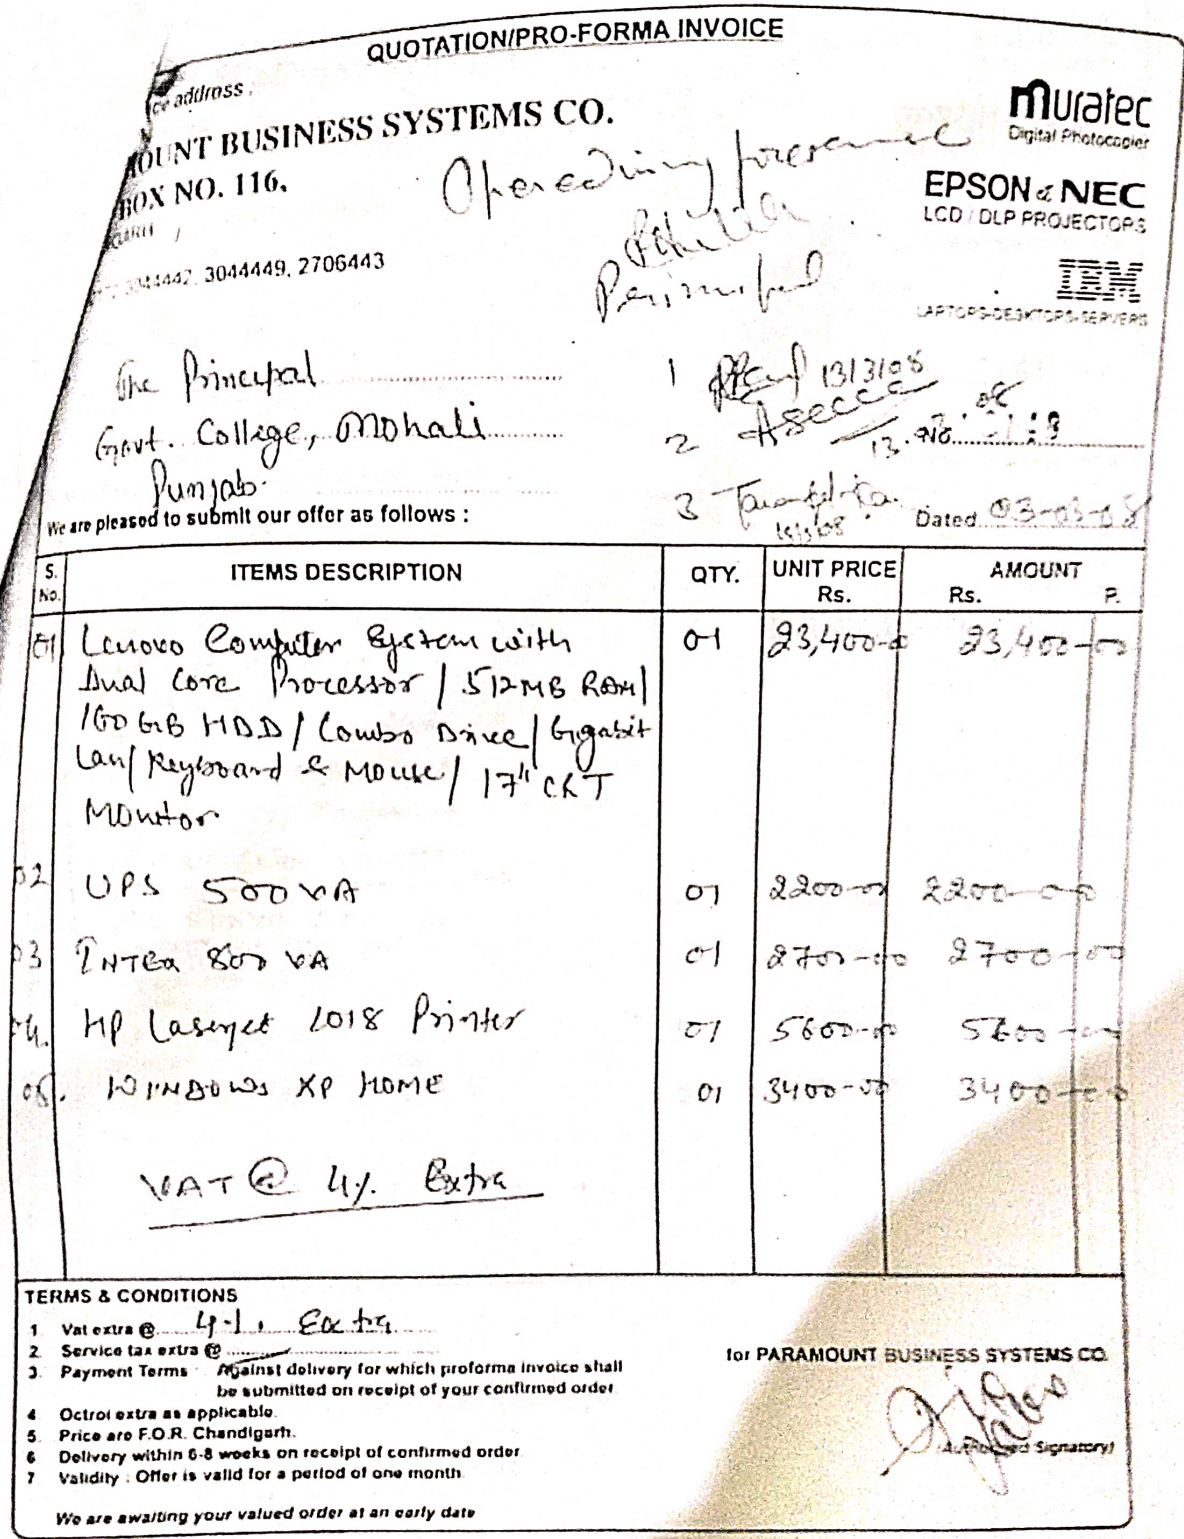 QUOTATION/PRO-FORMA INVOICE
address
OUNT BUSINESS SYSTEMS CO.
BOX NO. 116,
GARH
3044442, 3044449, 2706443
muratec
Digital Photocopier
EPSON & NEC
LCD / DLP PROJECTORS
IBM
LAPTOPS-DESKTOPS-SERVERS
The Principal
Govt. College, Mohali
Punjab.
1 13/3/08
2
3
No.
Dated 03-03-08
We are pleased to submit our offer as follows :
S. No. ITEMS DESCRIPTION QTY. UNIT PRICE Rs. AMOUNT Rs. P.
01 Lenovo Computer System with 01 23,400-00 23,400-00
Dual Core Processor / 512 MB RAM/
160 GB HDD / Combo Drive / Gigabit
Lan/ Keyboard & Mouse / 17" CRT
Monitor
02 UPS 500 VA 01 2200-00 2200-00
03 INTEX 800 VA 01 2700-00 2700-00
04. HP Laserjet 1018 Printer 01 5600-00 5600-00
05. WINDOWS XP HOME 01 3400-00 3400-00
VAT @ 4% Extra
TERMS & CONDITIONS
1 Vat extra @ 4%. Extra
2 Service tax extra @
3. Payment Terms : Against delivery for which proforma invoice shall
be submitted on receipt of your confirmed order.
4 Octroi extra as applicable.
5. Price are F.O.R. Chandigarh.
6 Delivery within 6-8 weeks on receipt of confirmed order.
7 Validity : Offer is valid for a period of one month.
We are awaiting your valued order at an early date
for PARAMOUNT BUSINESS SYSTEMS CO.
(Authorised Signatory)